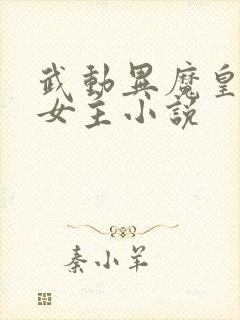 武動異魔皇
女主小説
秦小羊